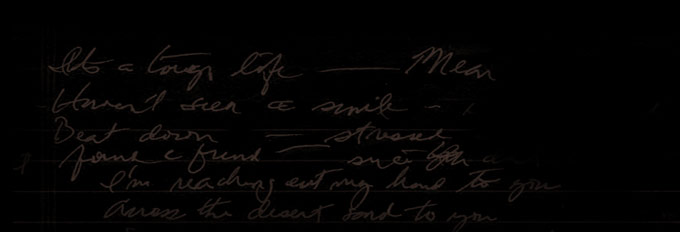 It's a tough life — Mean
Haven't seen a smile -
Beat down — stressed
found a friend —
I'm reaching out my hand to you
Across the desert sand to you